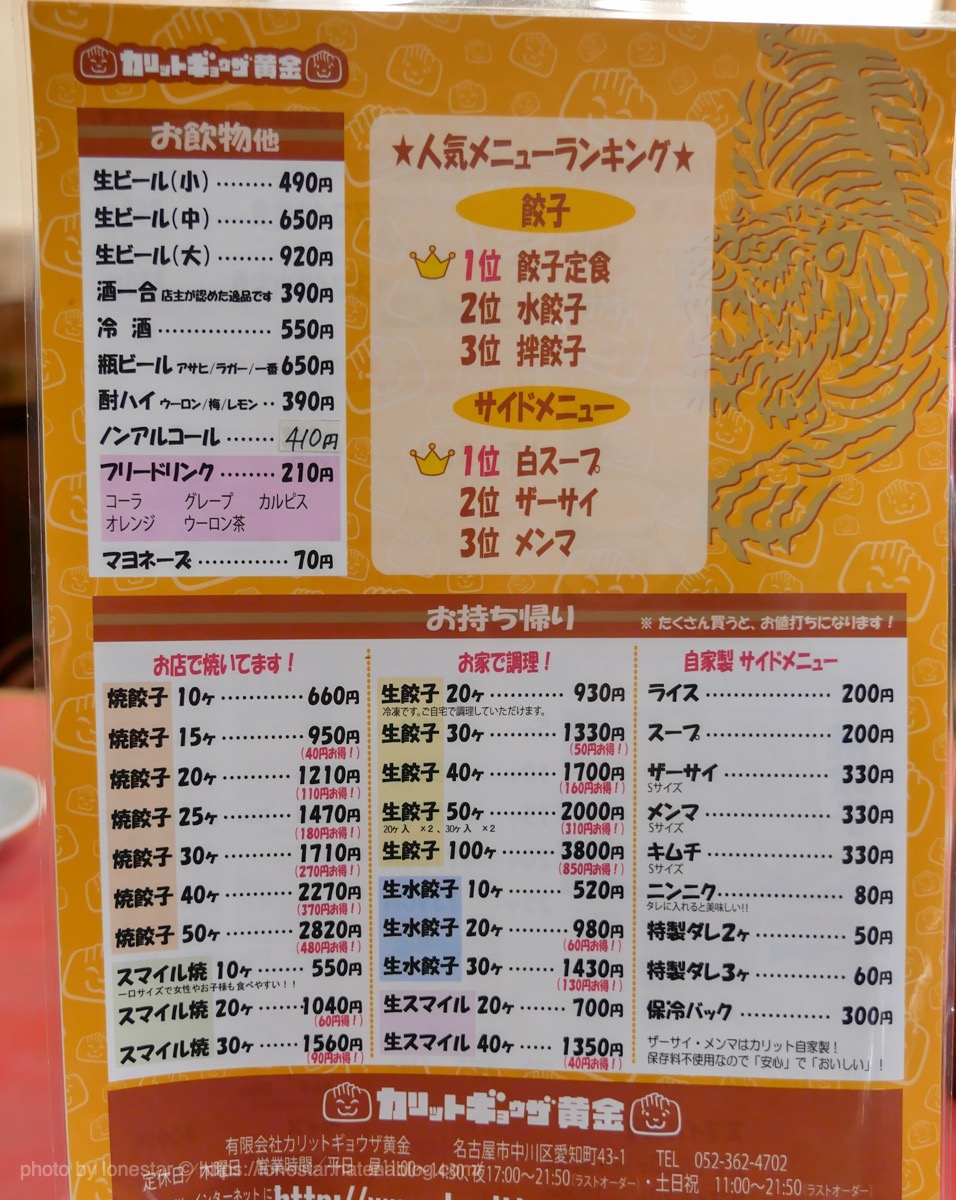 カリットギョウザ黄金
お飲物他
生ビール(小) ········ 490円
生ビール(中) ········ 650円
生ビール(大) ········ 920円
酒一合 店主が認めた逸品です 390円
冷 酒 ················ 550円
瓶ビール アサヒ/ラガー/一番 650円
酎ハイ ウーロン/梅/レモン ·· 390円
ノンアルコール ······· 410円
フリードリンク ········ 210円
コーラ グレープ カルピス
オレンジ ウーロン茶
マヨネーズ ············· 70円
★人気メニューランキング★
餃子
1位 餃子定食
2位 水餃子
3位 拌餃子
サイドメニュー
1位 白スープ
2位 ザーサイ
3位 メンマ
お持ち帰り
※ たくさん買うと、お値打ちになります!
お店で焼いてます!
焼餃子 10ヶ ············ 660円
焼餃子 15ヶ ············ 950円
(40円お得!)
焼餃子 20ヶ ·········· 1210円
(110円お得!)
焼餃子 25ヶ ·········· 1470円
(180円お得!)
焼餃子 30ヶ ·········· 1710円
(270円お得!)
焼餃子 40ヶ ·········· 2270円
(370円お得!)
焼餃子 50ヶ ·········· 2820円
(480円お得!)
スマイル焼 10ヶ ······ 550円
一口サイズで女性やお子様も食べやすい!!
スマイル焼 20ヶ ······ 1040円
(60円得!)
スマイル焼 30ヶ ····· 1560円
(90円お得!)
お家で調理!
生餃子 20ヶ ··········· 930円
冷凍です。ご自宅で調理していただけます。
生餃子 30ヶ ·········· 1330円
(50円お得!)
生餃子 40ヶ ·········· 1700円
(160円お得!)
生餃子 50ヶ ·········· 2000円
20ヶ入 ×2、30ヶ入 ×2
(310円お得!)
生餃子 100ヶ ········ 3800円
(850円お得!)
生水餃子 10ヶ ········ 520円
生水餃子 20ヶ ········ 980円
(60円お得!)
生水餃子 30ヶ ······· 1430円
(130円お得!)
生スマイル 20ヶ ······ 700円
生スマイル 40ヶ ····· 1350円
(40円お得!)
自家製 サイドメニュー
ライス ·················· 200円
スープ ·················· 200円
ザーサイ ··············· 330円
Sサイズ
メンマ ·················· 330円
Sサイズ
キムチ ·················· 330円
Sサイズ
ニンニク ················· 80円
タレに入れると美味しい!!
特製ダレ2ヶ ·············· 50円
特製ダレ3ヶ ·············· 60円
保冷バック ············· 300円
ザーサイ・メンマはカリット自家製!
保存料不使用なので「安心」で「おいしい」!
カリットギョウザ黄金
有限会社カリットギョウザ黄金 名古屋市中川区愛知町43-1 TEL 052-362-4702
定休日/木曜日 営業時間/平日 昼11:00〜14:30、夜17:00〜21:50(ラストオーダー)・土日祝 11:00〜21:50(ラストオーダー)
photo by lonestar ©
インターネットに